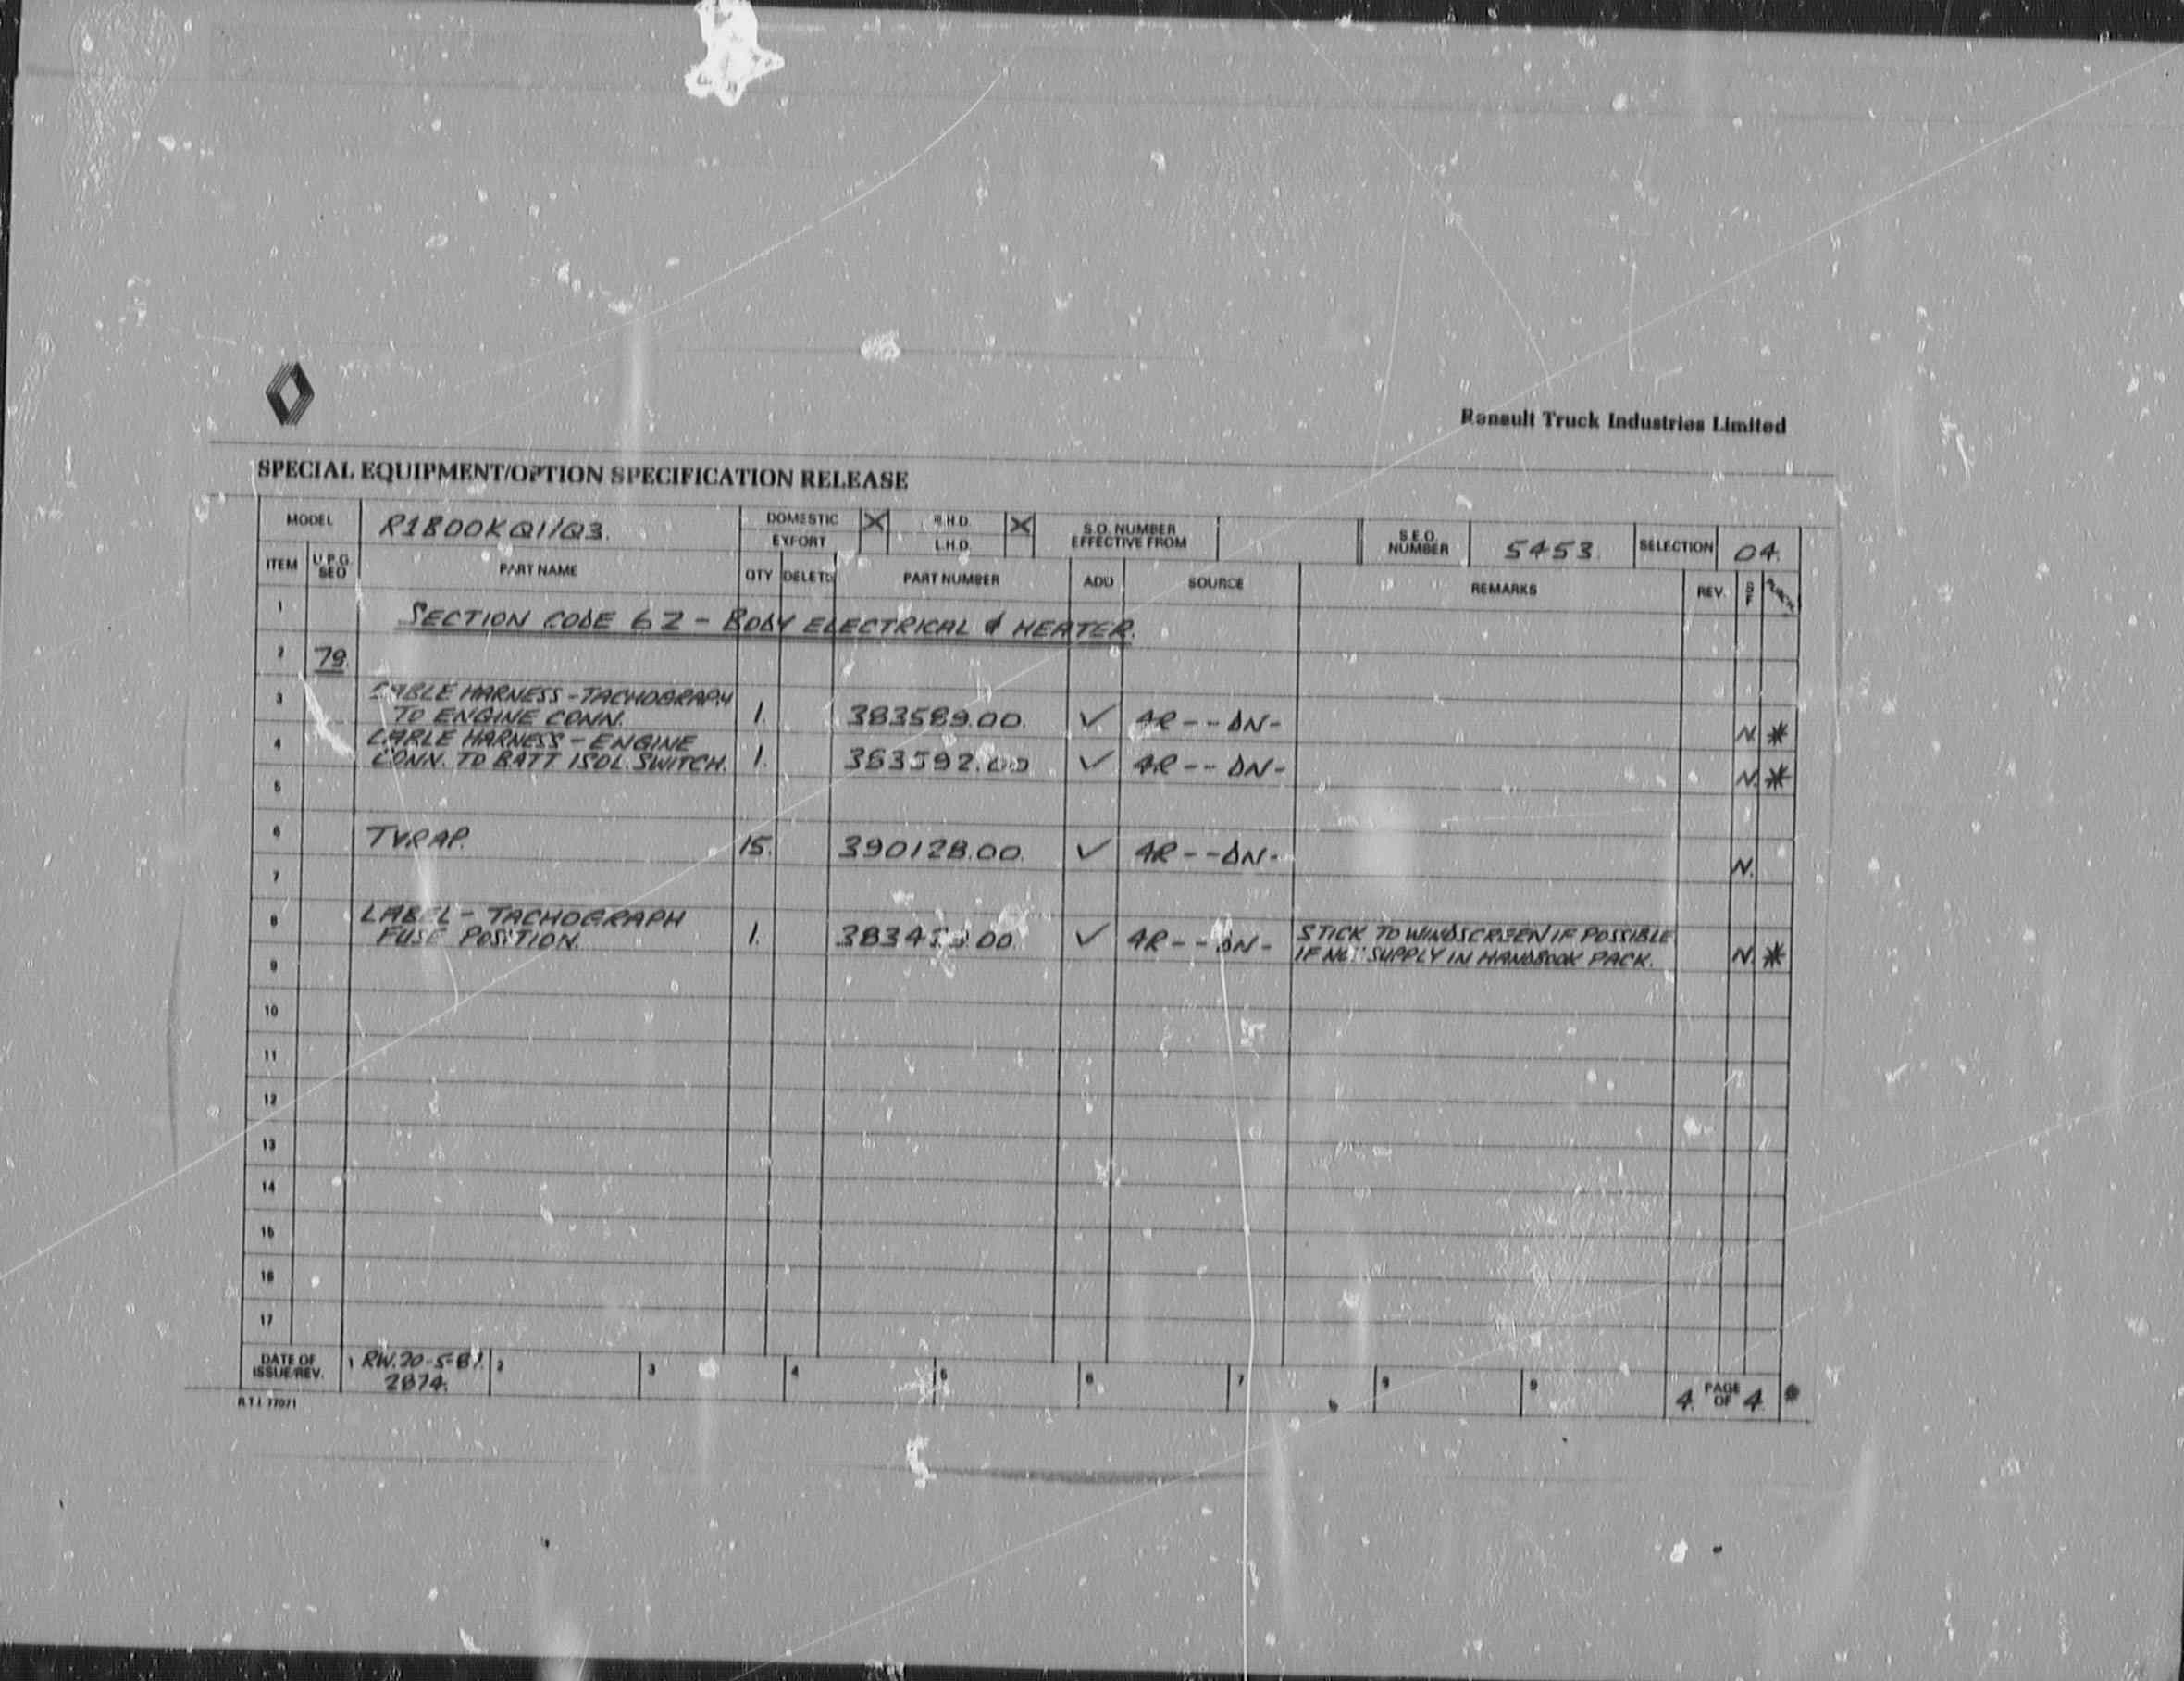 Renault Truck Industries Limited
SPECIAL EQUIPMENT/OPTION SPECIFICATION RELEASE
MODEL R1800KQ1/Q3. DOMESTIC X R.H.D. X S.O. NUMBER EFFECTIVE FROM S.E.O. NUMBER 5453. SELECTION 04.
EXPORT L.H.D.
ITEM U.P.G. SEQ PART NAME QTY DELETE PART NUMBER ADD SOURCE REMARKS REV. S F
1 SECTION CODE 62 - BODY ELECTRICAL & HEATER.
2 79.
3 CABLE HARNESS - TACHOGRAPH
TO ENGINE CONN. 1. 383589.00. ✓ 4R--DN- N. *
4 CABLE HARNESS - ENGINE
CONN. TO BATT ISOL. SWITCH. 1. 383592.00 ✓ 4R--DN- N. *
5
6 TYRAP. 15. 390128.00. ✓ 4R--DN- N.
7
8 LABEL - TACHOGRAPH STICK TO WINDSCREEN IF POSSIBLE
FUSE POSITION. 1. ✓ 4R--DN- IF NOT SUPPLY IN HANDBOOK PACK. N. *
9
10
11
12
13
14
15
16
17
DATE OF ISSUE/REV. 1 RW. 20-5-81. 2 3 4 5 6 7 8 9 4. PAGE OF 4.
2874.
R.T.I. 77071